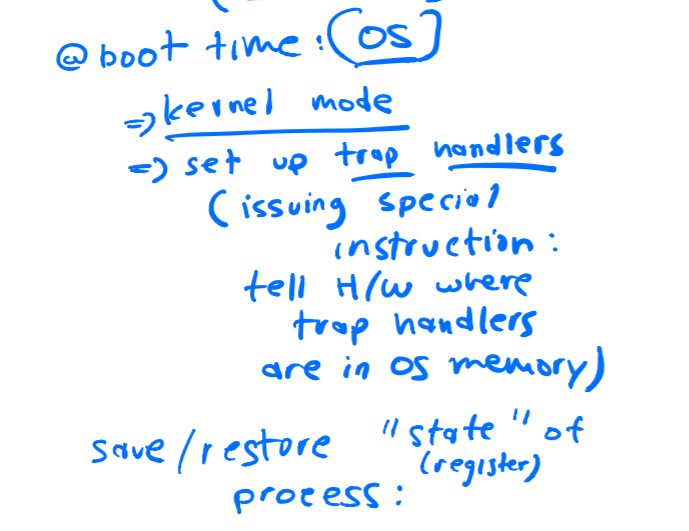 @ boot time: (OS)
=> kernel mode
=> set up trap handlers
(issuing special
instruction:
tell H/W where
trap handlers
are in OS memory)
save/restore "state" of
(register)
process: